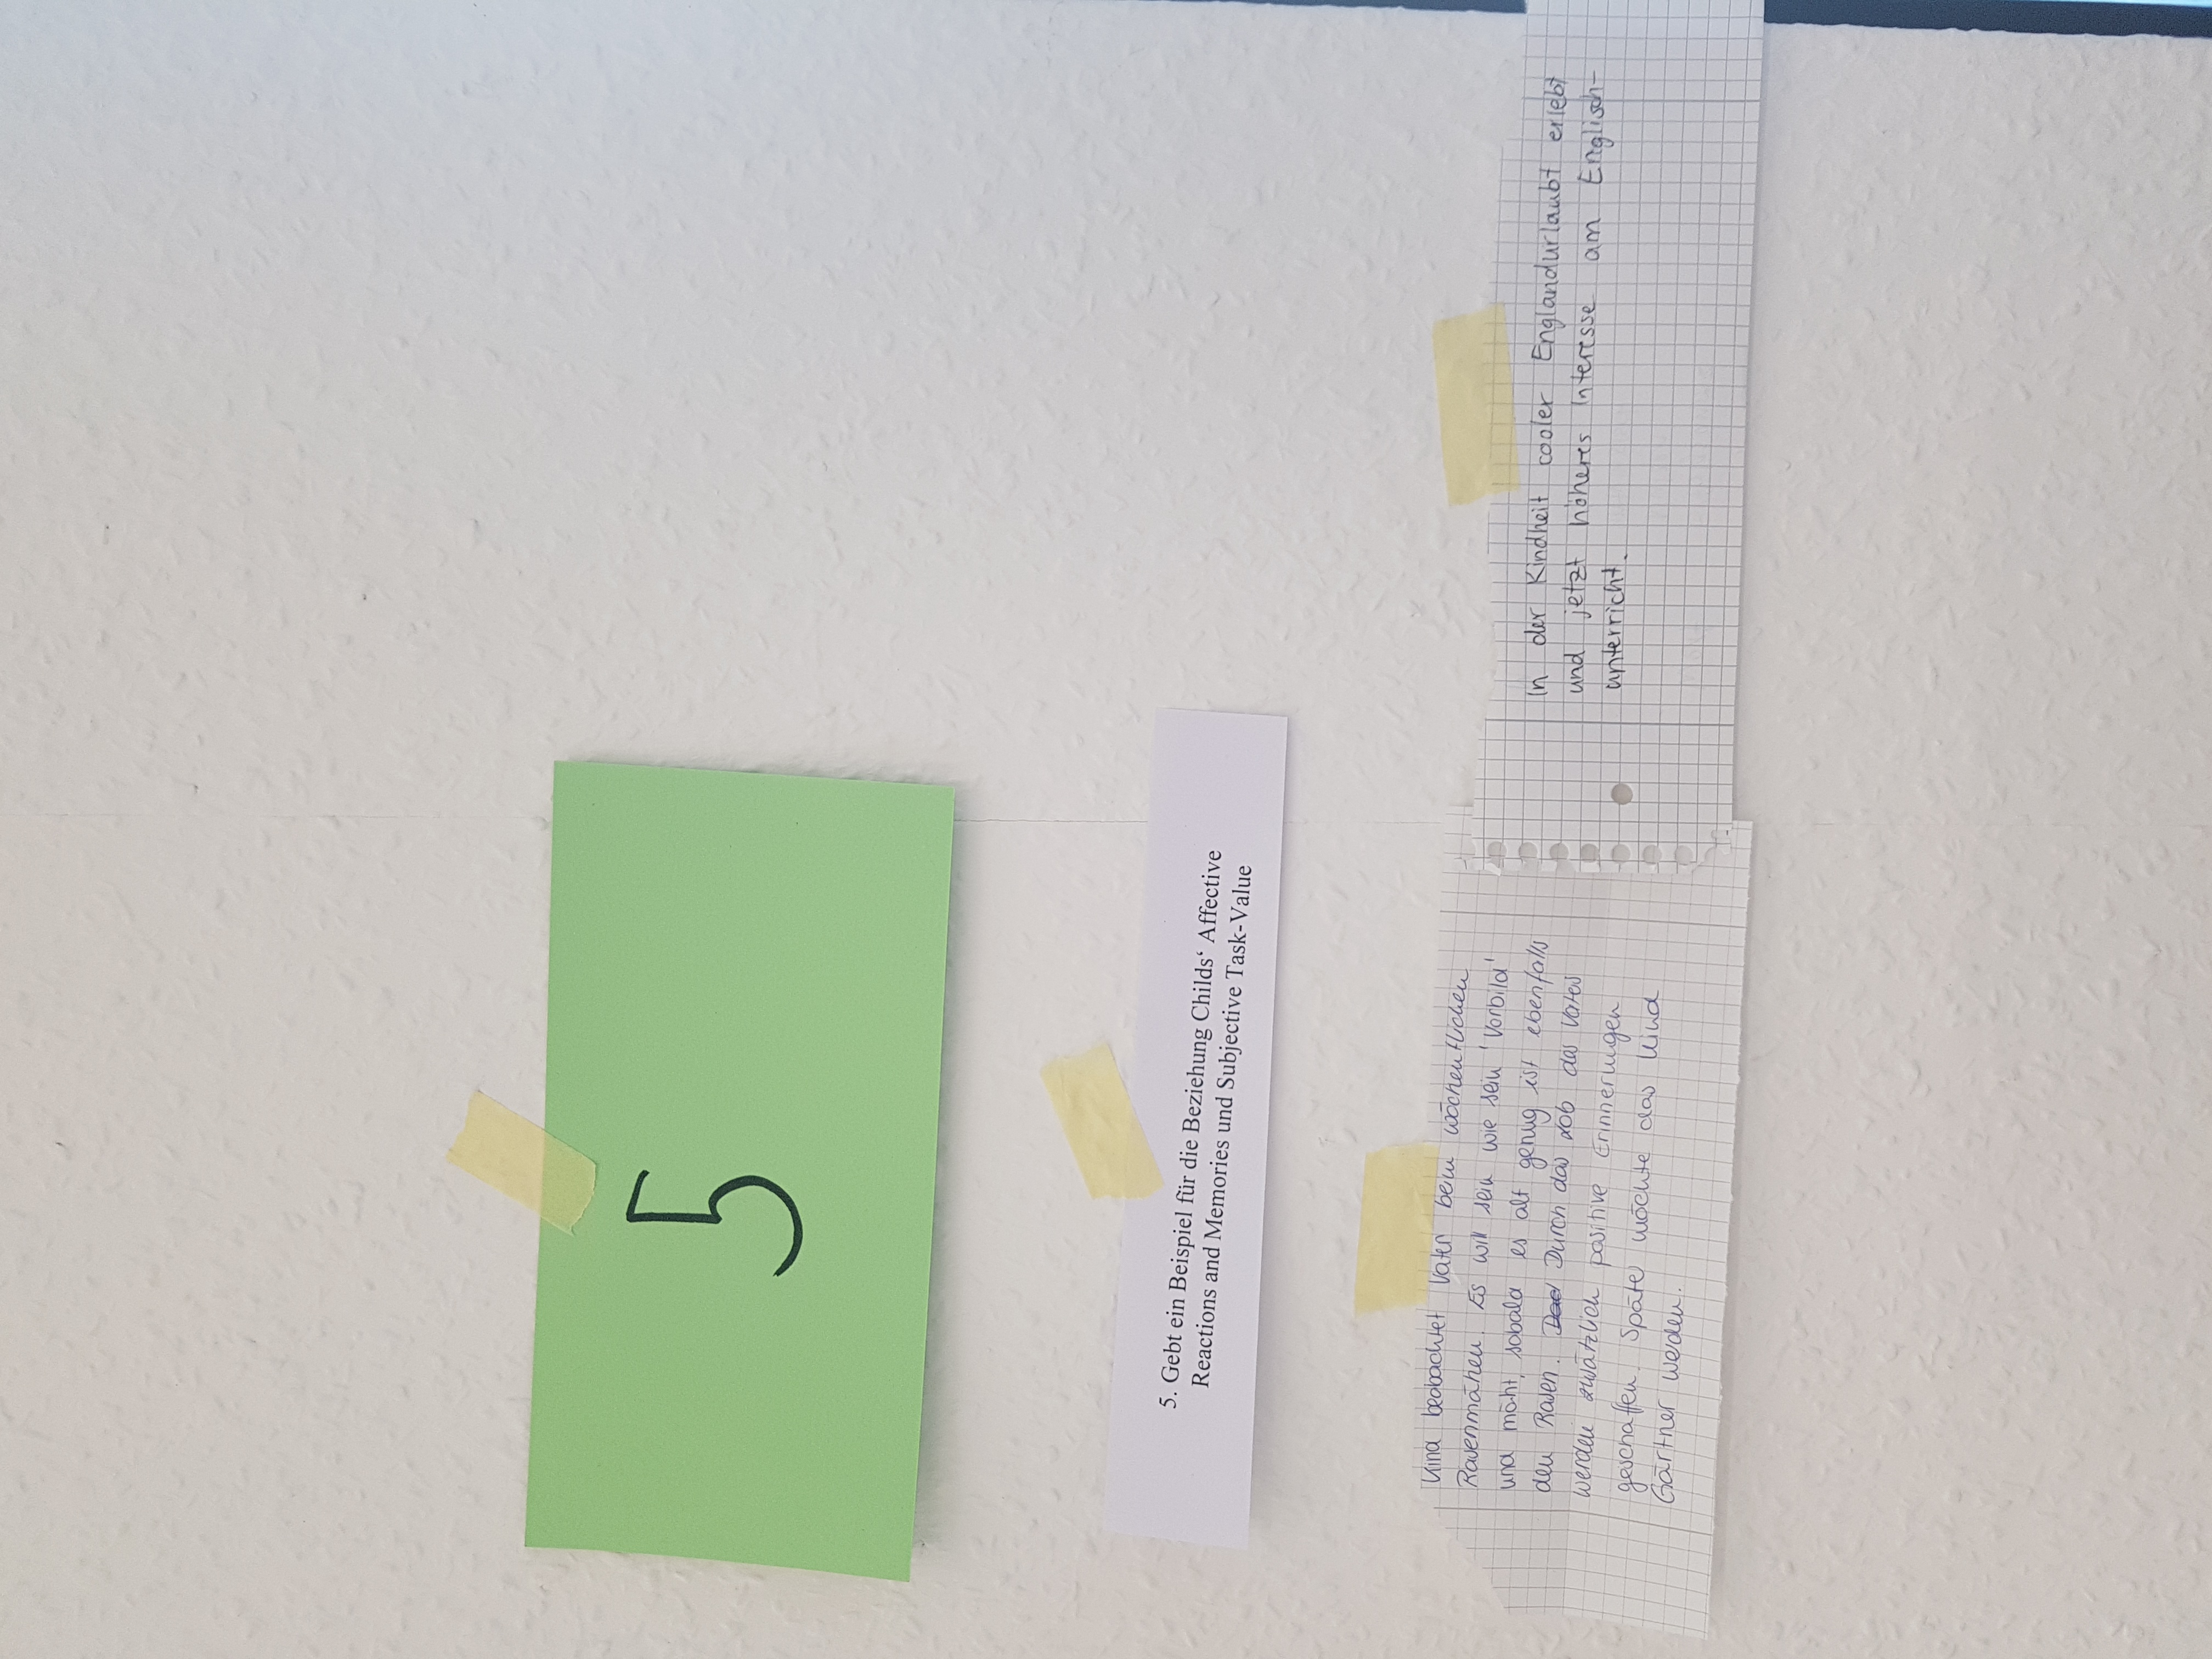 5
5. Gebt ein Beispiel für die Beziehung Childs‘ Affective
Reactions and Memories und Subjective Task-Value
Kind beobachtet Vater beim wöchentlichen
Rasenmähen. Es will sein wie sein 'Vorbild'
und mäht, sobald es alt genug ist ebenfalls
den Rasen. Durch das Lob des Vaters
werden zusätzlich positive Erinnerungen
geschaffen. Später möchte das Kind
Gärtner werden.
In der Kindheit cooler Englandurlaubt erlebt
und jetzt höheres Interesse am Englisch-
unterricht.